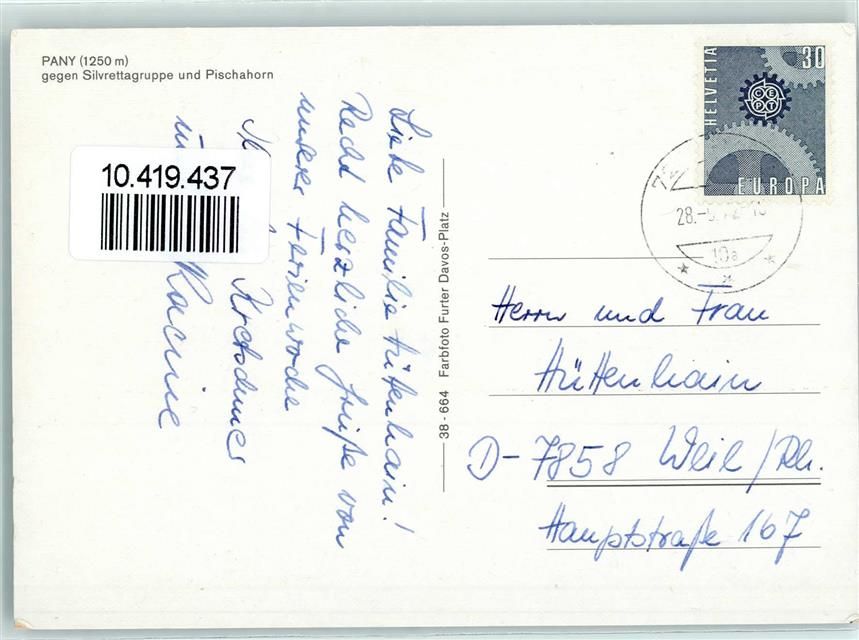 PANY (1250 m)
gegen Silvrettagruppe und Pischahorn
10.419.437
Liebe Familie Hüttenhain!
Recht herzliche Grüße von
unserer Ferienwoche
Kretschmer
Racine
38 - 664 Farbfoto Furter Davos-Platz
HELVETIA
30
CEPT
EUROPA
28.-
10a
Herrn und Frau
Hüttenhain
D-7858 Weil/Rh.
Hauptstraße 167